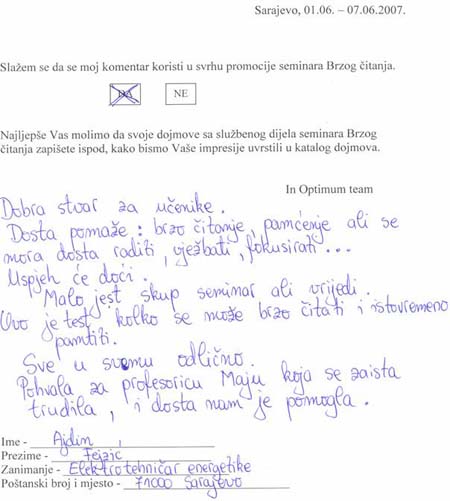 Sarajevo, 01.06. – 07.06.2007.
Slažem se da se moj komentar koristi u svrhu promocije seminara Brzog čitanja.
DA NE
Najljepše Vas molimo da svoje dojmove sa službenog dijela seminara Brzog
čitanja zapišete ispod, kako bismo Vaše impresije uvrstili u katalog dojmova.
In Optimum team
Dobra stvar za učenike.
Dosta pomaže : brzo čitanje, pamćenje ali se
mora dosta raditi, vježbati, fokusirati ...
Uspjeh će doći.
Malo jest skup seminar ali vrijedi.
Ovo je test kolko se može brzo čitati i istovremeno
pamtiti.
Sve u svemu odlično.
Pohvala za profesoricu Maju koja se zaista
trudila, i dosta nam je pomogla.
Ime - Ajdin
Prezime - Fejzic
Zanimanje - Elektrotehničar energetike
Poštanski broj i mjesto - 71000 Sarajevo